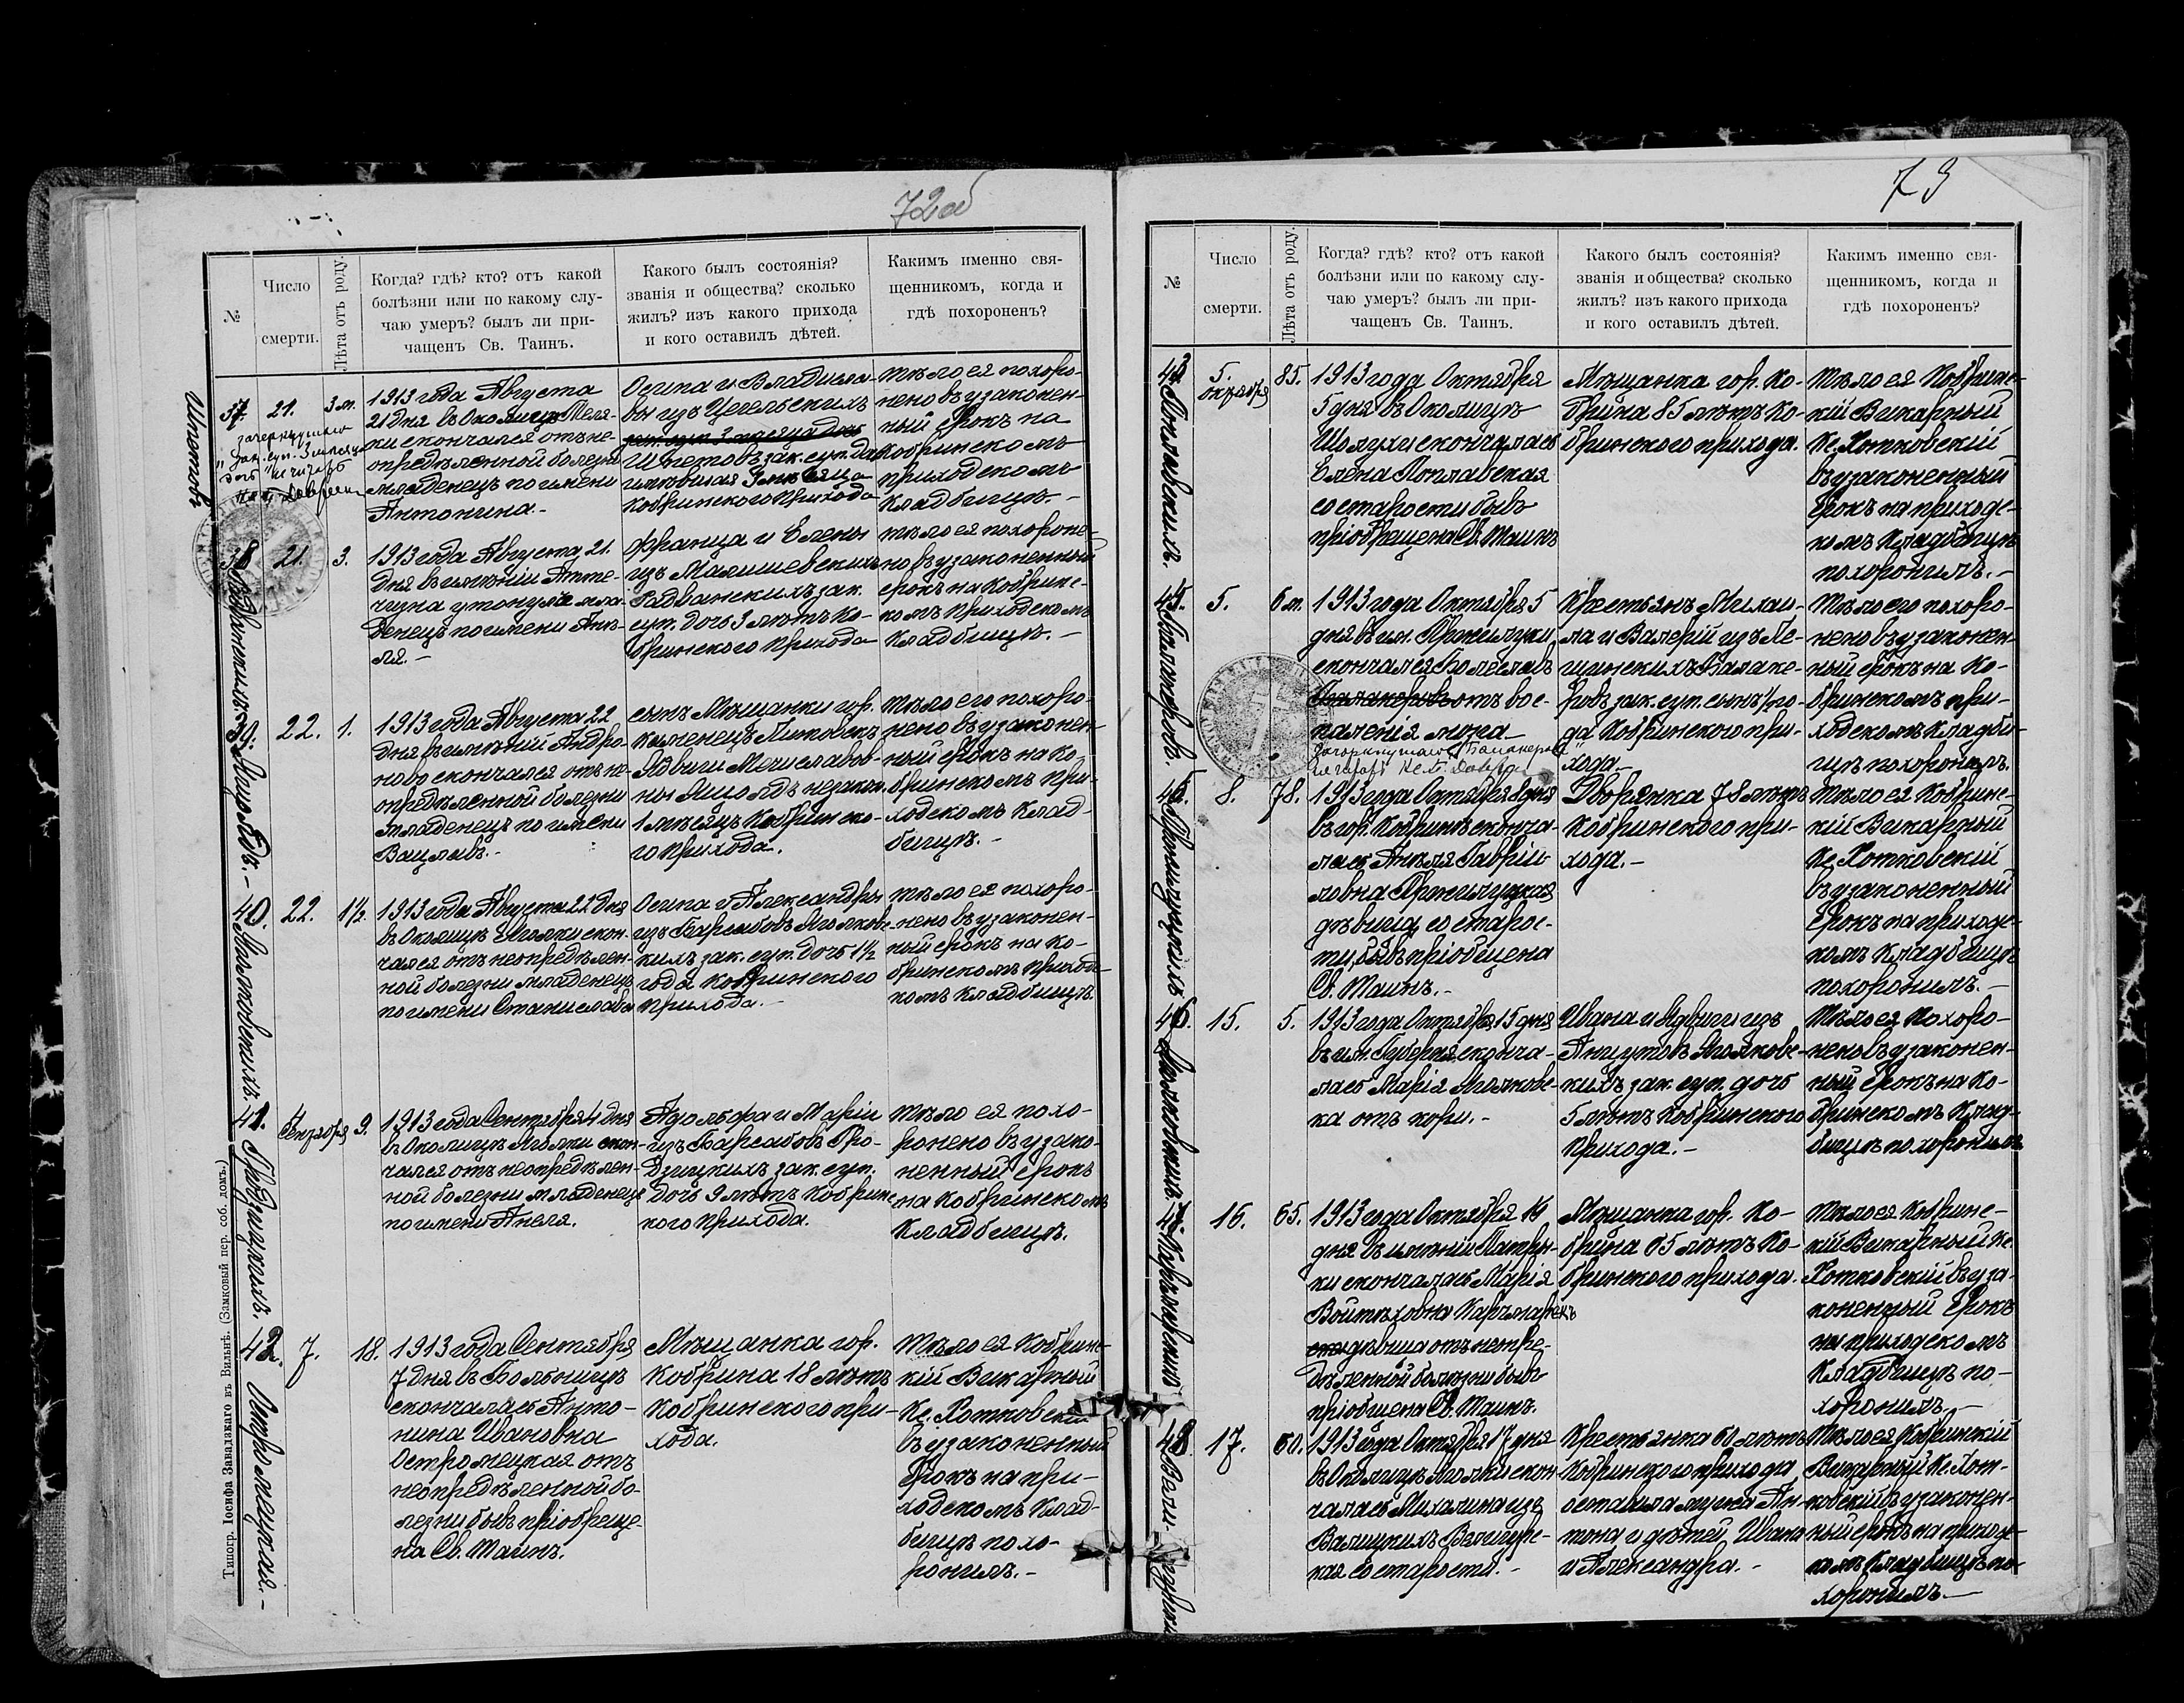 72об
№
Число
смерти.
Лѣта отъ роду.
Когда? гдѣ? кто? отъ какой
болѣзни или по какому слу-
чаю умеръ? былъ ли при-
чащенъ Св. Таинъ.
Какого былъ состоянія?
званія и общества? сколько
жилъ? изъ какого прихода
и кого оставилъ дѣтей.
Какимъ именно свя-
щенникомъ, когда и
гдѣ похороненъ?
Шпетовъ
37.
21.
3 м.
зачеркнутаго
"зак. суп. 3 мѣсяца
дочь" не читать
1913 года Августа
21 дня въ Околицѣ
скончался отъ не-
опредѣленной болезни
младенецъ по имени
Антонина.-
Осипа и Владисла-
вы изъ Цегельскихъ
зак. суп. 3 месяца дочь
Шпетовъ зак. суп. дочь
имѣвшая 3 мѣсяца
Кобринского прихода
тѣло ея похоро-
нено въ узаконен-
ный срокъ на
Кобринскомъ
приходскомъ
кладбищѣ.-
38
21.
3.
1913 года Августа 21
дня въ имѣніи Атте-
чизна утонула мла-
денецъ по имени Анѣ-
ля.-
Франца и Елены
изъ Малишевскихъ
зак.
суп. дочь 3 лѣтъ Ко-
бринского прихода
тѣло ея похороне-
но въ узаконенный
срокъ на Кобринс-
комъ приходскомъ
кладбищѣ.-
39.
22.
1.
1913 года Августа 22
дня въ имѣніи Андро-
ново скончался отъ не-
опредѣленной болезни
младенецъ по имени
Вацлавъ.-
сынъ Мѣщанки гор.
Каменецъ Литовскъ
Ядвиги Мечиславов-
ны незакон.
1 мѣсяцъ Кобринско-
го прихода.
тѣло его похоро-
нено въ узаконен-
ный срокъ на Ко-
бринскомъ при-
ходскомъ клад-
бищѣ.-
40.
22.
1½.
1913 года Августа 22 дня
въ Околицѣ Яголки скон-
чался отъ неопредѣлен-
ной болезни младенецъ
по имени Станислава
Осипа и Александры
изъ Барсабовъ Яголковс-
кихъ зак. суп. дочь 1½
года Кобринского
прихода.-
тѣло ея похоро-
нено въ узаконен-
ный срокъ на Ко-
бринскомъ приходс-
комъ кладбищѣ.
41.
Сентября
9.
Гродзицкихъ.
1913 года Сентября 4 дня
въ Околицѣ Яголки скон-
чался отъ неопредѣлен-
ной болезни младенецъ
по имени Анеля.
Адольфа и Маріи
изъ Барсабовъ Гро-
дзицкихъ зак. суп.
дочь 9 лѣтъ Кобринс-
кого прихода.
тѣло ея похо-
ронено въ узако-
ненный срокъ
на Кобринскомъ
кладбищѣ.
42.
7.
18.
Остромецкая.-
1913 года Сентября
7 дня въ Больницѣ
скончалась Анто-
нина Ивановна
Остромецкая отъ
неопредѣленной бо-
лезни бывъ пріобреще-
на Св. Таинъ.
Мѣщанка гор.
Кобрина 18 лѣтъ
Кобринского при-
хода.
Тѣло ея Кобринс-
кій Викарный
Кс. Хотковскій
въ узаконенный
срокъ на при-
ходскомъ клад-
бищѣ похо-
ронилъ.-
Типогр. Іосифа Завадзкаго въ Вильнѣ. (Замковый пер. соб. домъ.)
73
№
Число
смерти.
Лѣта отъ роду.
Когда? гдѣ? кто? отъ какой
болѣзни или по какому слу-
чаю умеръ? былъ ли при-
чащенъ Св. Таинъ.
Какого былъ состоянія?
званія и общества? сколько
жилъ? изъ какого прихода
и кого оставилъ дѣтей.
Какимъ именно свя-
щенникомъ, когда и
гдѣ похороненъ?
43.
5.
октября
85.
1913 года Октября
5 дня въ Околицѣ
Шолухи скончалась
Елена Поплавская
со старости бывъ
пріобрещена Св. Таинъ
Мѣщанка гор. Ко-
брина 85 лѣтъ Ко-
бринского прихода.
Тѣло ея Кобринс-
кій Викарный
Кс. Хотковскій
въ узаконенный
срокъ на приходс-
комъ кладбищѣ
похоронилъ.-
44.
5.
6 м.
1913 года Октября 5
дня въ им.
скончался Болеславъ
отъ вос-
паленія
Крестьянъ Михаи-
ла и Валеріи изъ
зак. суп. сынъ ½ го-
да Кобринского при-
хода.-
Тѣло его похоро-
нено въ узаконен-
ный срокъ на Ко-
бринскомъ при-
ходскомъ кладби-
щѣ похоронилъ.
45.
8.
78.
1913 года Октября 8 дня
въ гор. Кобринѣ сконча-
лась Анѣля Гаврії-
ловна
дѣвица со старос-
ти, бывъ пріобщена
Св. Таинъ.-
Дворянка 78 лѣтъ
Кобринского при-
хода.-
Тѣло ея Кобринс-
кій Викарный
Кс. Хотковскій
въ узаконенный
срокъ на приходс-
комъ кладбищѣ
похоронилъ.-
46.
15.
5.
1913 года Октября 15 дня
въ им. Губерня сконча-
лась Марія Яголковс-
ка отъ кори.-
Ивана и Ядвиги изъ
Анцутовъ Яголковс-
кихъ зак. суп. дочь
5 лѣтъ Кобринского
прихода.-
Тѣло ея похоро-
нено въ узаконен-
ный срокъ на Ко-
бринскомъ клад-
бищѣ похоронилъ
47.
16.
65.
1913 года Октября 16
дня въ имѣніи Патри-
ки скончалась Марія
Войтѣховна
дѣвица отъ неопре-
дѣленной болѣзни бывъ
пріобщена Св. Таинъ.
Мѣщанка гор. Ко-
брина 65 лѣтъ Ко-
бринского прихода.
Тѣло ея Кобринс-
кій Викарный Кс.
Хотковскій въ уза-
коненный срокъ
на приходскомъ
кладбищѣ по-
хоронилъ.-
48
17.
60.
1913 года Октября 17 дня
въ Околицѣ Яголки скон-
чалась Михалина изъ
Валицкихъ
кая со старости.-
Крестьянка 60 лѣтъ
Кобринского прихода
оставила мужа Ан-
тона и дѣтей Ивана
и Александра.-
Тѣло ея Кобринскій
Викарный Кс. Хот-
ковскій въ узаконен-
ный срокъ на приходс-
комъ кладбищѣ по-
хоронилъ.-